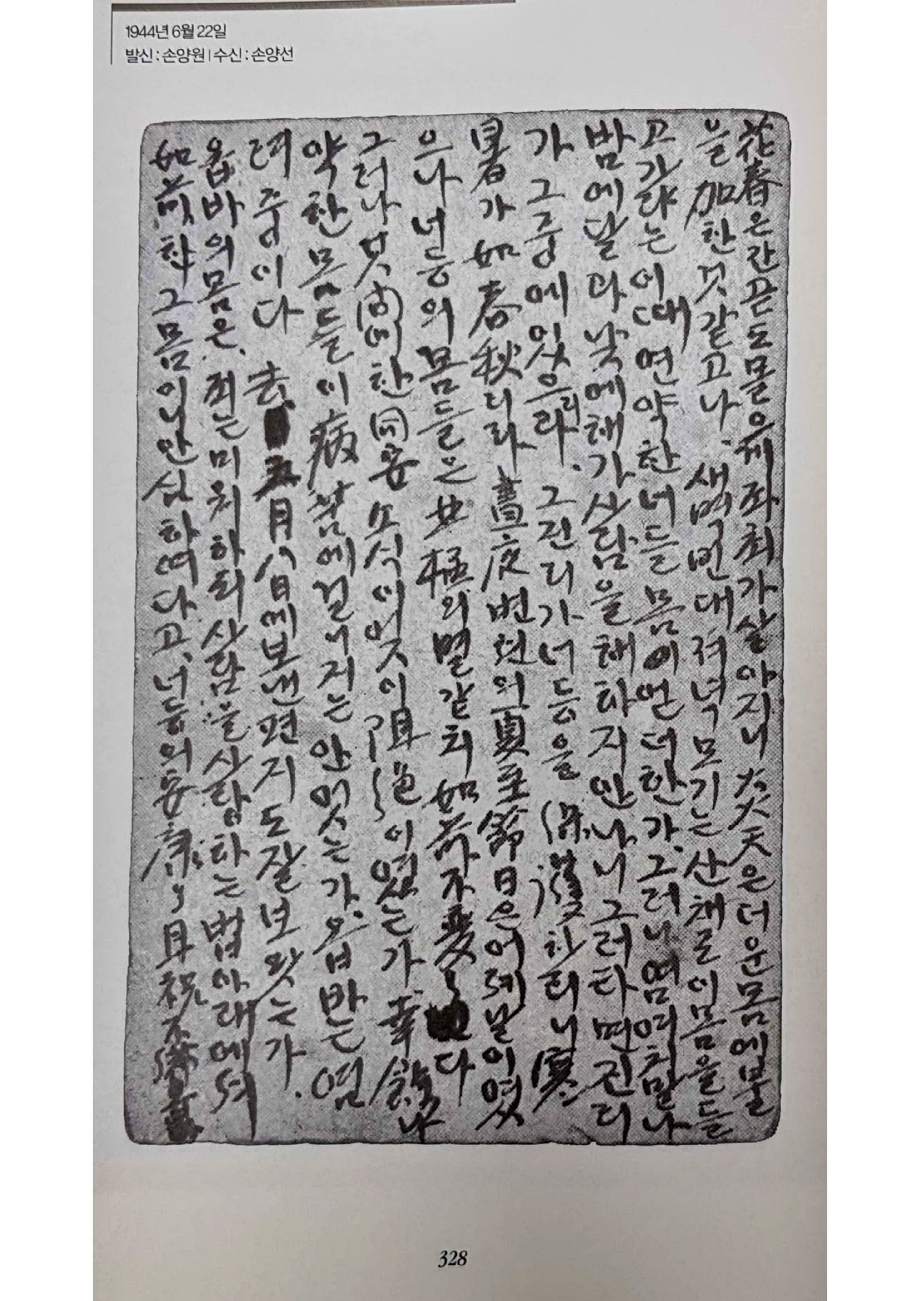 1944년 6월 22일
발신 : 손양원 | 수신 : 손양선
花春은 간곧도 몰으게 좌최가 살아지니 炎天은 더운몸에 불
을 加한것 같고나. 새벽 번대 저녁 모기는 산채로 이몸을 들
고가랴는 이때 연약한 너들 몸이 언더한가. 그러나 염여치말나
밤에달과 낮에해가 사람을 해하지 안나니 그러타면 진리
가 그중에 있으리라. 그진리가 너들을 保護하리니 寒
暑가 如春秋리라 晝夜 변현의 夏至 日은 어제날이엿
으나 너등의 몸들은 北極의 별같치 如前不変 다
그러나 멋 間한 同안 소식이엇이 이엿는가 幸
약한 몸들이 病苦에 걸니지는 안엇는가. 옵바는 염
려중이다 去 五月八日에 보낸 편지도 잘 보왓는가.
옵바의 몸은. 죄는 미워하되 사람을 사랑하는 법아래에서
如前한 그몸이니 안심하여다고. 너등의 安康 祝
328